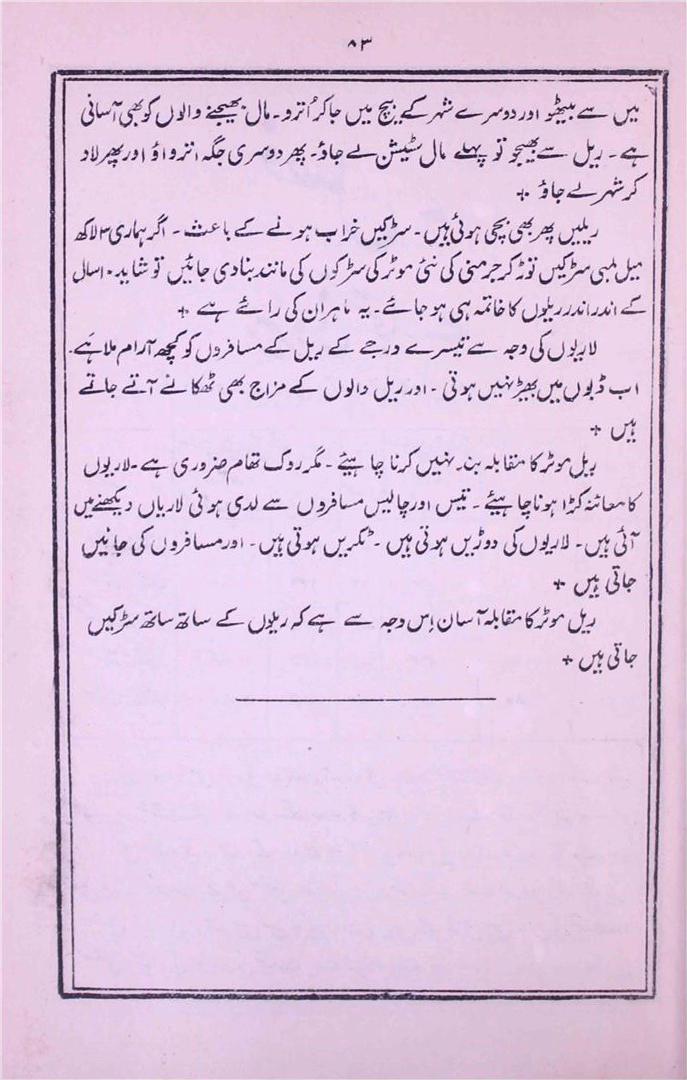 ۸۳
میں سے بیٹھو اور دوسرے شہر کے بیچ میں جا کر اُترو۔ مال بھیجنے والوں کو بھی آسانی
ہے۔ ریل سے بھیجو تو پہلے مال سٹیشن لے جاؤ۔ پھر دوسری جگہ اتر واؤ اور پھر لاد
کر شہر لے جاؤ +
ریلیں پھر بھی بچی ہوئی ہیں۔ سڑکیں خراب ہونے کے باعث۔ اگر ہماری ۳ لاکھ
میل لمبی سڑکیں توڑ کر جرمنی کی نئی موٹر کی سڑکوں کی مانند بنا دی جائیں تو شاید ۱۰ سال
کے اندر اندر ریلوں کا خاتمہ ہی ہو جائے۔ یہ ماہران کی رائے ہے +
لاریوں کی وجہ سے تیسرے درجے کے ریل کے مسافروں کو کچھ آرام ملا ہے۔
اب ڈبوں میں بھیڑ نہیں ہوتی۔ اور ریل والوں کے مزاج بھی ٹھکانے آتے جاتے
ہیں +
ریل موٹر کا مقابلہ بند نہیں کرنا چاہیئے۔ مگر روک تھام ضروری ہے۔ لاریوں
کا معائنہ کڑا ہونا چاہیئے۔ تیس اور چالیس مسافروں سے لدی ہوئی لاریاں دیکھنے میں
آئی ہیں۔ لاریوں کی دوڑیں ہوتی ہیں۔ ٹکریں ہوتی ہیں۔ اور مسافروں کی جانیں
جاتی ہیں +
ریل موٹر کا مقابلہ آسان اِس وجہ سے ہے کہ ریلوں کے ساتھ ساتھ سڑکیں
جاتی ہیں +